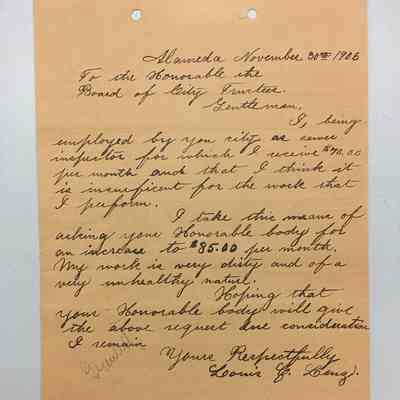 Alameda November 30th 1906
To the Honorable the
Board of City Trustees
Gentleman.
I, being
employed by you city as sewer
inspector for which I receive $70.00
per month and that I think it
is insuficent for the work that
I perform.
I take this means of
asking your Honorable body for
an increase to $85.00 per month.
My work is very dirty and of a
very unhealthy nature.
Hoping that
your Honorable body will give
the above request due consideration
I remain
Yours Respectfully
Louis C.